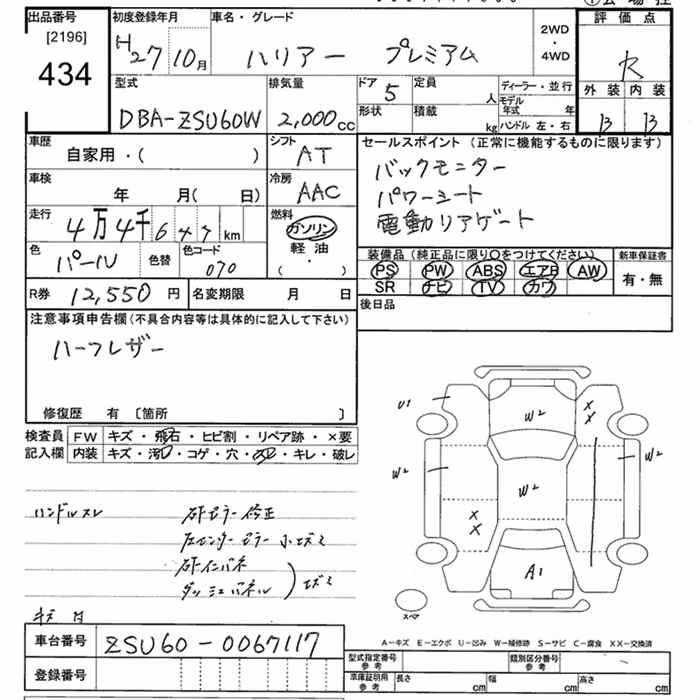 出品番号 初度登録年月 車名・グレード 2WD ・ 4WD 評価点
[2196]
434
H27 10月 ハリアー プレミアム R
型式 排気量 ドア 5 定員 人 ディーラー・並行 外装 内装
DBA-ZSU60W 2,000cc 形状 積載 kg モデル年式 年 ハンドル 左・右 B B
車歴 シフト セールスポイント(正常に機能するものに限ります)
自家用・( ) AT バックモニター
車検 冷房 パワーシート
年 月( 日) AAC 電動リアゲート
走行 4万4千6 km 燃料 ガソリン
軽油
・
色 パール 色替 色コード 070
装備品(純正品に限り○をつけてください) 新車保証書
PS PW ABS エアB AW 有・無
SR ナビ TV カワ
R券 12,550円 名変期限 月 日 後日品
注意事項申告欄(不具合内容等は具体的に記入して下さい)
ハーフレザー
修復歴 有 〔箇所 〕
検査員 FW キズ・飛石・ヒビ割・リペア跡・×要
記入欄 内装 キズ・汚レ・コゲ・穴・スレ・キレ・破レ
U1 W2 X X
W2 W2 W2
X X
A1
スペア
ハンドルスレ
修正
キズ
A-キズ E-エクボ U-凹み W-補修跡 S-サビ C-腐食 XX-交換済
車台番号 ZSU60-0067117
登録番号
型式指定番号 参考 類別区分番号 参考
車庫証明用 参考 長さ cm 幅 cm 高さ cm